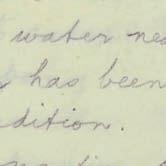 water nea
has been
dition.